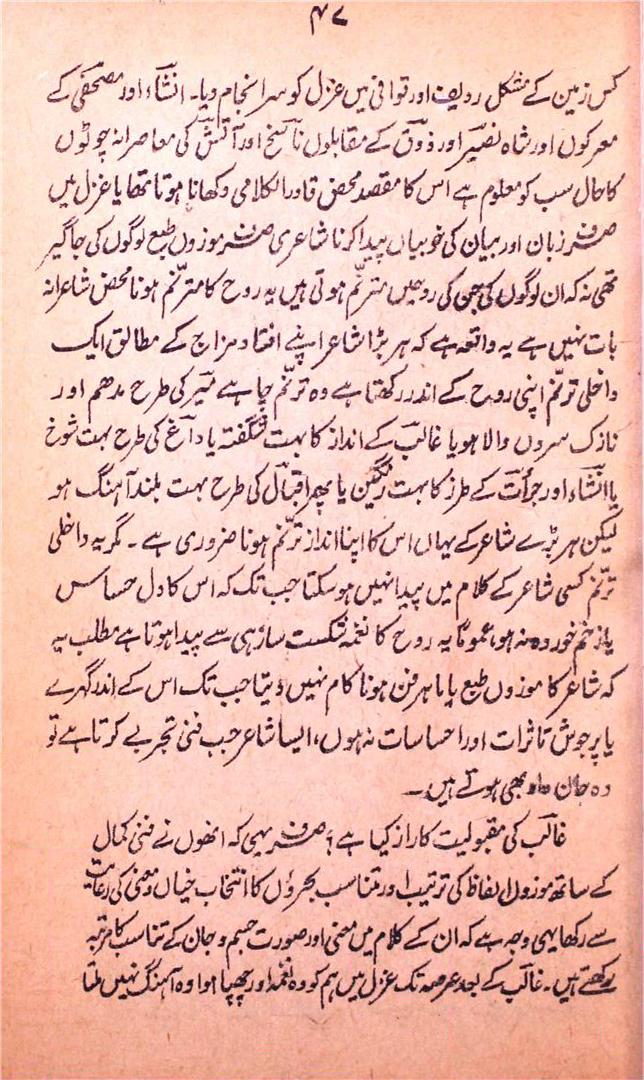 ۴۷
کس زمین کے مشکل ردیف اور قوافی میں غزل کو سر انجام دیا۔ انشاؔء اور مصحفیؔ کے
معرکوں اور شاہ نصیرؔ اور ذوقؔ کے مقابلوں ناسخؔ اور آتشؔ کی معاصرانہ چوٹوں
کا حال سب کو معلوم ہے اس کا مقصد محض قادر الکلامی دکھانا ہوتا تھا یا غزل میں
صرف زبان اور بیان کی خوبیاں پیدا کرنا شاعری صرف موزوں طبع لوگوں کی جاگیر
تھی نہ کہ ان لوگوں کی جن کی روحیں مترنّم ہوتی ہیں یہ روح کا مترنّم ہونا محض شاعرانہ
بات نہیں ہے یہ واقعہ ہے کہ ہر بڑا شاعر اپنے افتاد مزاج کے مطابق ایک
داخلی ترنّم اپنی روح کے اندر رکھتا ہے وہ ترنّم چاہے میرؔ کی طرح مدھم اور
نازک سروں والا ہو یا غالبؔ کے انداز کا بہت شگفتہ یا داغؔ کی طرح بہت شوخ
یا انشاؔء اور جرأتؔ کے طرز کا بہت رنگین یا پھر اقبالؔ کی طرح بہت بلند آہنگ ہو
لیکن ہر بڑے شاعر کے یہاں اس کا اپنا انداز ترنّم ہونا ضروری ہے۔ مگر یہ داخلی
ترنّم کسی شاعر کے کلام میں پیدا نہیں ہو سکتا جب تک کہ اس کا دل حساس
یا زخم خوردہ نہ ہو، عموماً یہ روح کا نغمہ شکست ساز ہی سے پیدا ہوتا ہے مطلب یہ
کہ شاعر کا موزوں طبع یا ماہر فن ہونا کام نہیں دیتا جب تک اس کے اندر گہرے
یا پرجوش تاثرات اور احساسات نہ ہوں، ایسا شاعر جب فنی تجربے کرتا ہے تو
وہ جان دار بھی ہوتے ہیں۔
غالبؔ کی مقبولیت کا راز کیا ہے؟ صرف یہی کہ انھوں نے فنی کمال
کے ساتھ موزوں الفاظ کی ترتیب اور متناسب بحروں کا انتخاب خیال و معنی کی رعایت
سے رکھا یہی وجہ ہے کہ ان کے کلام میں معنی اور صورت جسم و جان کے تناسب کا مرتبہ
رکھتے ہیں۔ غالبؔ کے بعد عرصہ تک غزل میں ہم کو وہ نغمہ اور چھپا ہوا وہ آہنگ نہیں ملتا